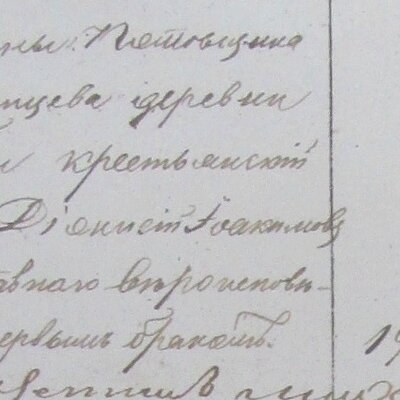 ны Потовщика
нцева деревни
и крестьянскій
Діонисій Іоакимовъ
авнаго вѣроисповѣ-
ервымъ бракомъ.
19